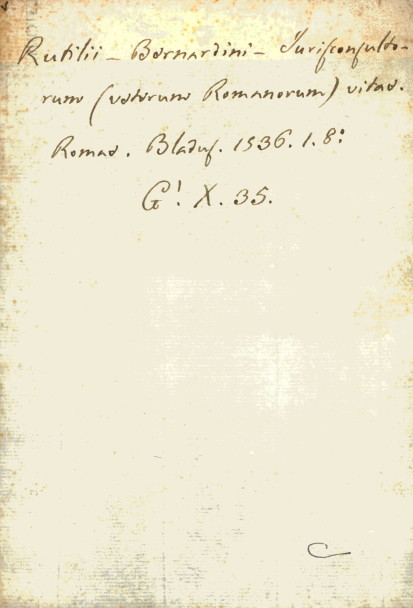 Rutilii - Bernardini - Jurisconsulto-
rum (veterum Romanorum) vitae.
Romae. Bladus. 1536. 1. 8:
G! X. 35.
C